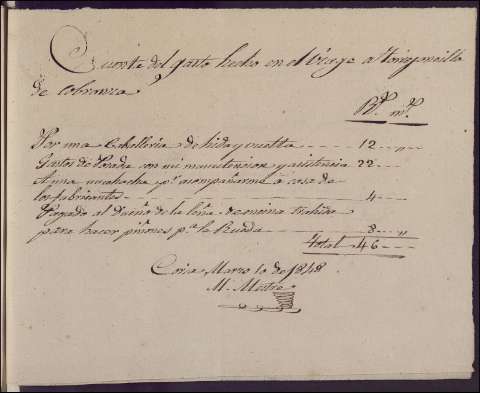 Cuenta del gasto hecho en el Viage a Torrejoncillo
de cobranza
Rs. ms.
Por una Caballeria de hida y vuelta 12 "
Gastos de Posada con mi manutencion y asistencia 22
A una muchacha pr. acompañarme à casa de
los fabricantes 4
Pagado al Dueño de la leña de encina trahida
para hacer piñones pa. la Rueda 8 "
Total 46
Coria Marzo 10 de 1848
M. Mestre